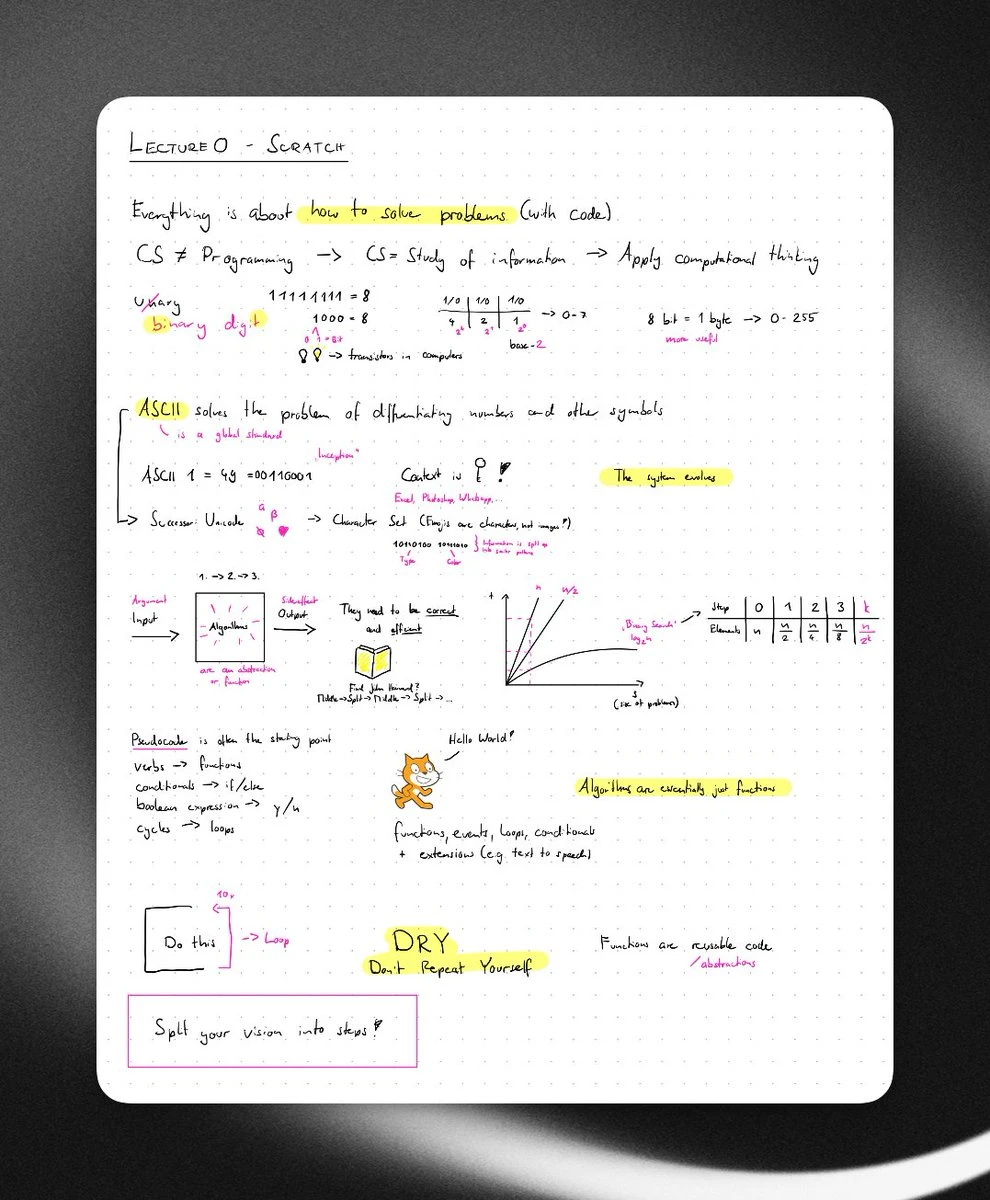 LECTURE 0 - SCRATCH
Everything is about how to solve problems (with code)
CS ≠ Programming -> CS = Study of information -> Apply computational thinking
Unary
binary digit
11111111 = 8
1000 = 8
0 1 = Bit
-> transistors in computers
1/0 | 1/0 | 1/0
4 | 2 | 1 -> 0-7
2² 2¹ 2⁰
base-2
8 bit = 1 byte -> 0-255
more useful
ASCII solves the problem of differentiating numbers and other symbols
is a global standard
"Inception"
ASCII 1 = 49 = 00110001
Context is !
Excel, Photoshop, Whatsapp,...
The system evolves
Successor: Unicode
ä β
-> Character Set (Emojis are characters, not images!)
Information is split up
into smaller patterns
Type Color
1. -> 2. -> 3.
Argument
Input
Algorithms
Side effect
Output
are an abstraction
or function
They need to be correct
and efficient
Find John Harvard?
Middle -> Split -> Middle -> Split -> ...
t
n
n/2
"Binary Search"
log₂n
s
(size of problems)
Step | 0 | 1 | 2 | 3 | k
Elements | n | n/2 | n/4 | n/8 | n/2ᵏ
Pseudocode is often the starting point
verbs -> functions
conditionals -> if/else
boolean expression -> y/n
cycles -> loops
Hello World!
functions, events, loops, conditionals
+ extensions (e.g. text to speech)
Algorithms are essentially just functions
10x
Do this
-> Loop
DRY
Don't Repeat Yourself
Functions are reusable code
/abstractions
Split your vision into steps!